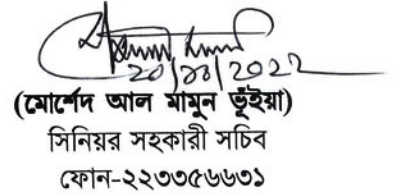 20/10/2022
(মোর্শেদ আল মামুন ভূঁইয়া)
সিনিয়র সহকারী সচিব
ফোন-২২৩৩৫৬৬৩১